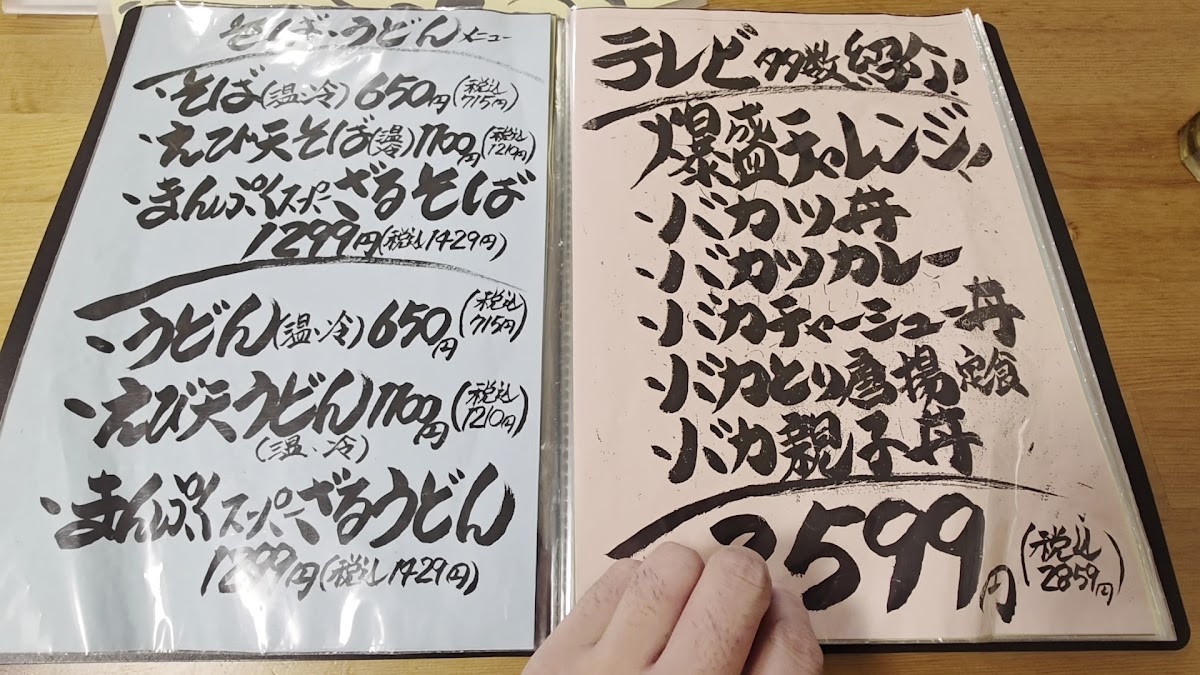 そば・うどんメニュー
・そば(温・冷)650円(税込715円)
・えび天そば(温・冷)1100円(税込1210円)
・まんぷくスーパーざるそば
1299円(税込1429円)
・うどん(温・冷)650円(税込715円)
・えび天うどん1100円(税込1210円)
(温・冷)
・まんぷくスーパーざるうどん
1299円(税込1429円)
テレビ多数紹介!
爆盛チャレンジ!
・バカツ丼
・バカツカレー
・バカチャーシュー丼
・バカとり唐揚定食
・バカ親子丼
2599円(税込2859円)